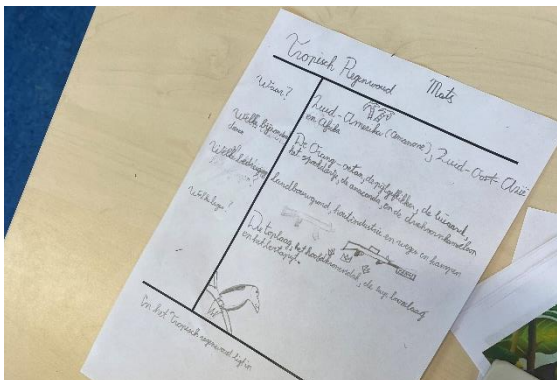 Tropisch Regenwoud Mats
Waar?
Zuid-Amerika (Amazone), Zuid-Oost-Azië
en Afrika
Welke bijzondere
dieren
De Orang-oetan, de pijlgifkikker, de luiaard,
het spookdiertje, de anaconda, en de driehoornkameleon
Welke bedreigingen?
Landbouwgrond, houtindustrie en wegen en
Welke lagen?
De toplaag, het hoofdkronendak, de lage boomlaag
en het bostapijt.
In het Tropisch regenwoud ligt in